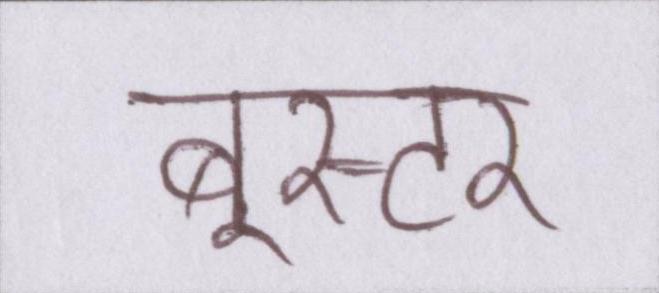 बूस्टर